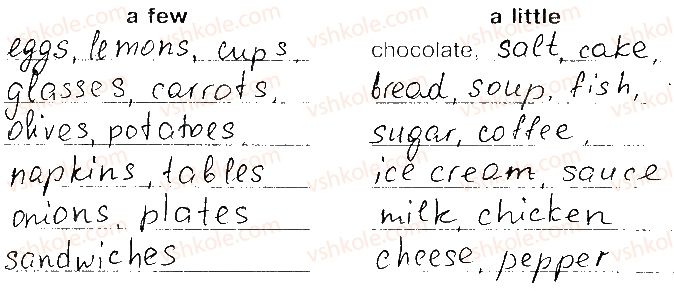 a few
eggs, lemons, cups,
glasses, carrots,
olives, potatoes
napkins, tables
onions, plates
sandwiches
a little
chocolate, salt, cake,
bread, soup, fish,
sugar, coffee,
ice cream, sauce
milk, chicken
cheese, pepper